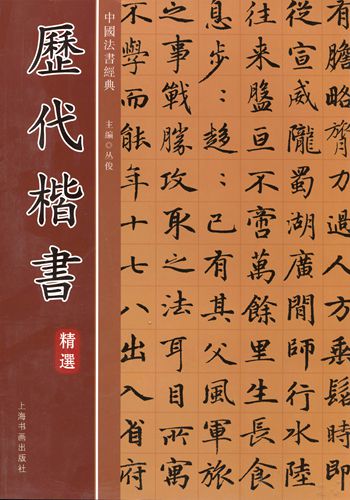 有膽略膂力過人方垂髫時即
從宣威隴蜀湖廣間師行水陸
往來盤亘不啻萬餘里生長食
息步：趍：已有其父風軍旅
之事戰勝攻取之法耳目所
不學而能年十七八出入省府
中國法書經典
主编◎丛俊
歷代楷書
精選
上海书画出版社